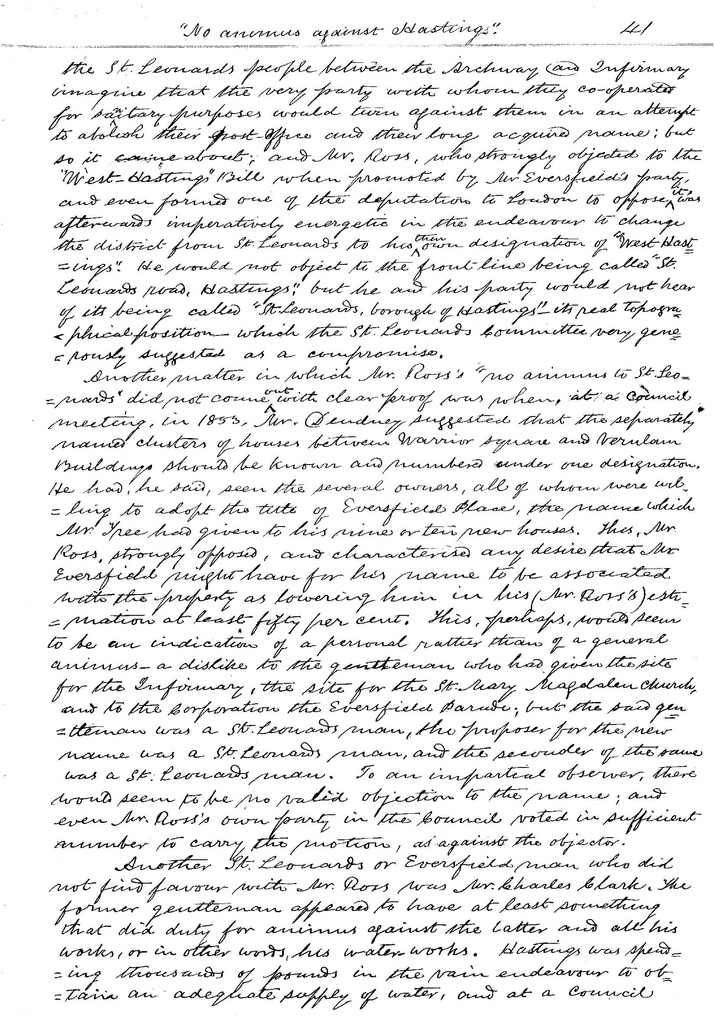 "No animus against Hastings". 41
the St. Leonards people between the Archway and Infirmary
imagine that the very party with whom they co-operated
for sanitary purposes would turn against them in an attempt
to abolish their post-office and their long acquired name; but
so it came about; and Mr. Ross, who strongly objected to the
"West-Hastings" Bill when promoted by Mr Eversfield's party,
and even formed one of the deputation to London to oppose it, was
afterwards imperatively energetic in the endeavour to change
the district from St. Leonards to his then own designation of "West Hast-
=ings". He would not object to the front-line being called "St.
Leonards road, Hastings," but he and his party would not hear
of its being called "St. Leonards, borough of Hastings" – its real topogra-
=phical position – which the St. Leonards Committee very gene-
=rously suggested as a compromise.
Another matter in which Mr. Ross's "no animus to St Leo-
=nards" did not come out with clear proof was when, at a Council
meeting, in 1853, Mr. Dendney suggested that the separately
named clusters of houses between Warrior square and Verulam
Buildings should be known and numbered under one designation.
He had, he said, seen the several owners, all of whom were wil-
=ling to adopt the title of Eversfield Place, the name which
Mr. Tree had given to his nine or ten new houses. This, Mr.
Ross, strongly opposed, and characterised any desire that Mr
Eversfield might have for his name to be associated
with the property as lowering him in his (Mr. Ross's) esti-
=mation at least fifty per cent. This, perhaps, would seem
to be an indication of a personal rather than of a general
animus – a dislike to the gentleman who had given the site
for the Infirmary, the site for the St. Mary Magdalen church,
and to the Corporation the Eversfield Parade; but the said gen
=tleman was a St. Leonards man, the proposer for the new
name was a St. Leonards man, and the seconder of the same
was a St. Leonards man. To an impartial observer, there
would seem to be no valid objection to the name; and
even Mr. Ross's own party in the Council voted in sufficient
number to carry the motion, as against the objector.
Another St. Leonards or Eversfield man who did
not find favour with Mr. Ross was Mr. Charles Clark. The
former gentleman appeared to have at least something
that did duty for animus against the latter and all his
works, or in other words, his water works. Hastings was spend=
=ing thousands of pounds in the vain endeavour to ob-
=tain an adequate supply of water, and at a Council